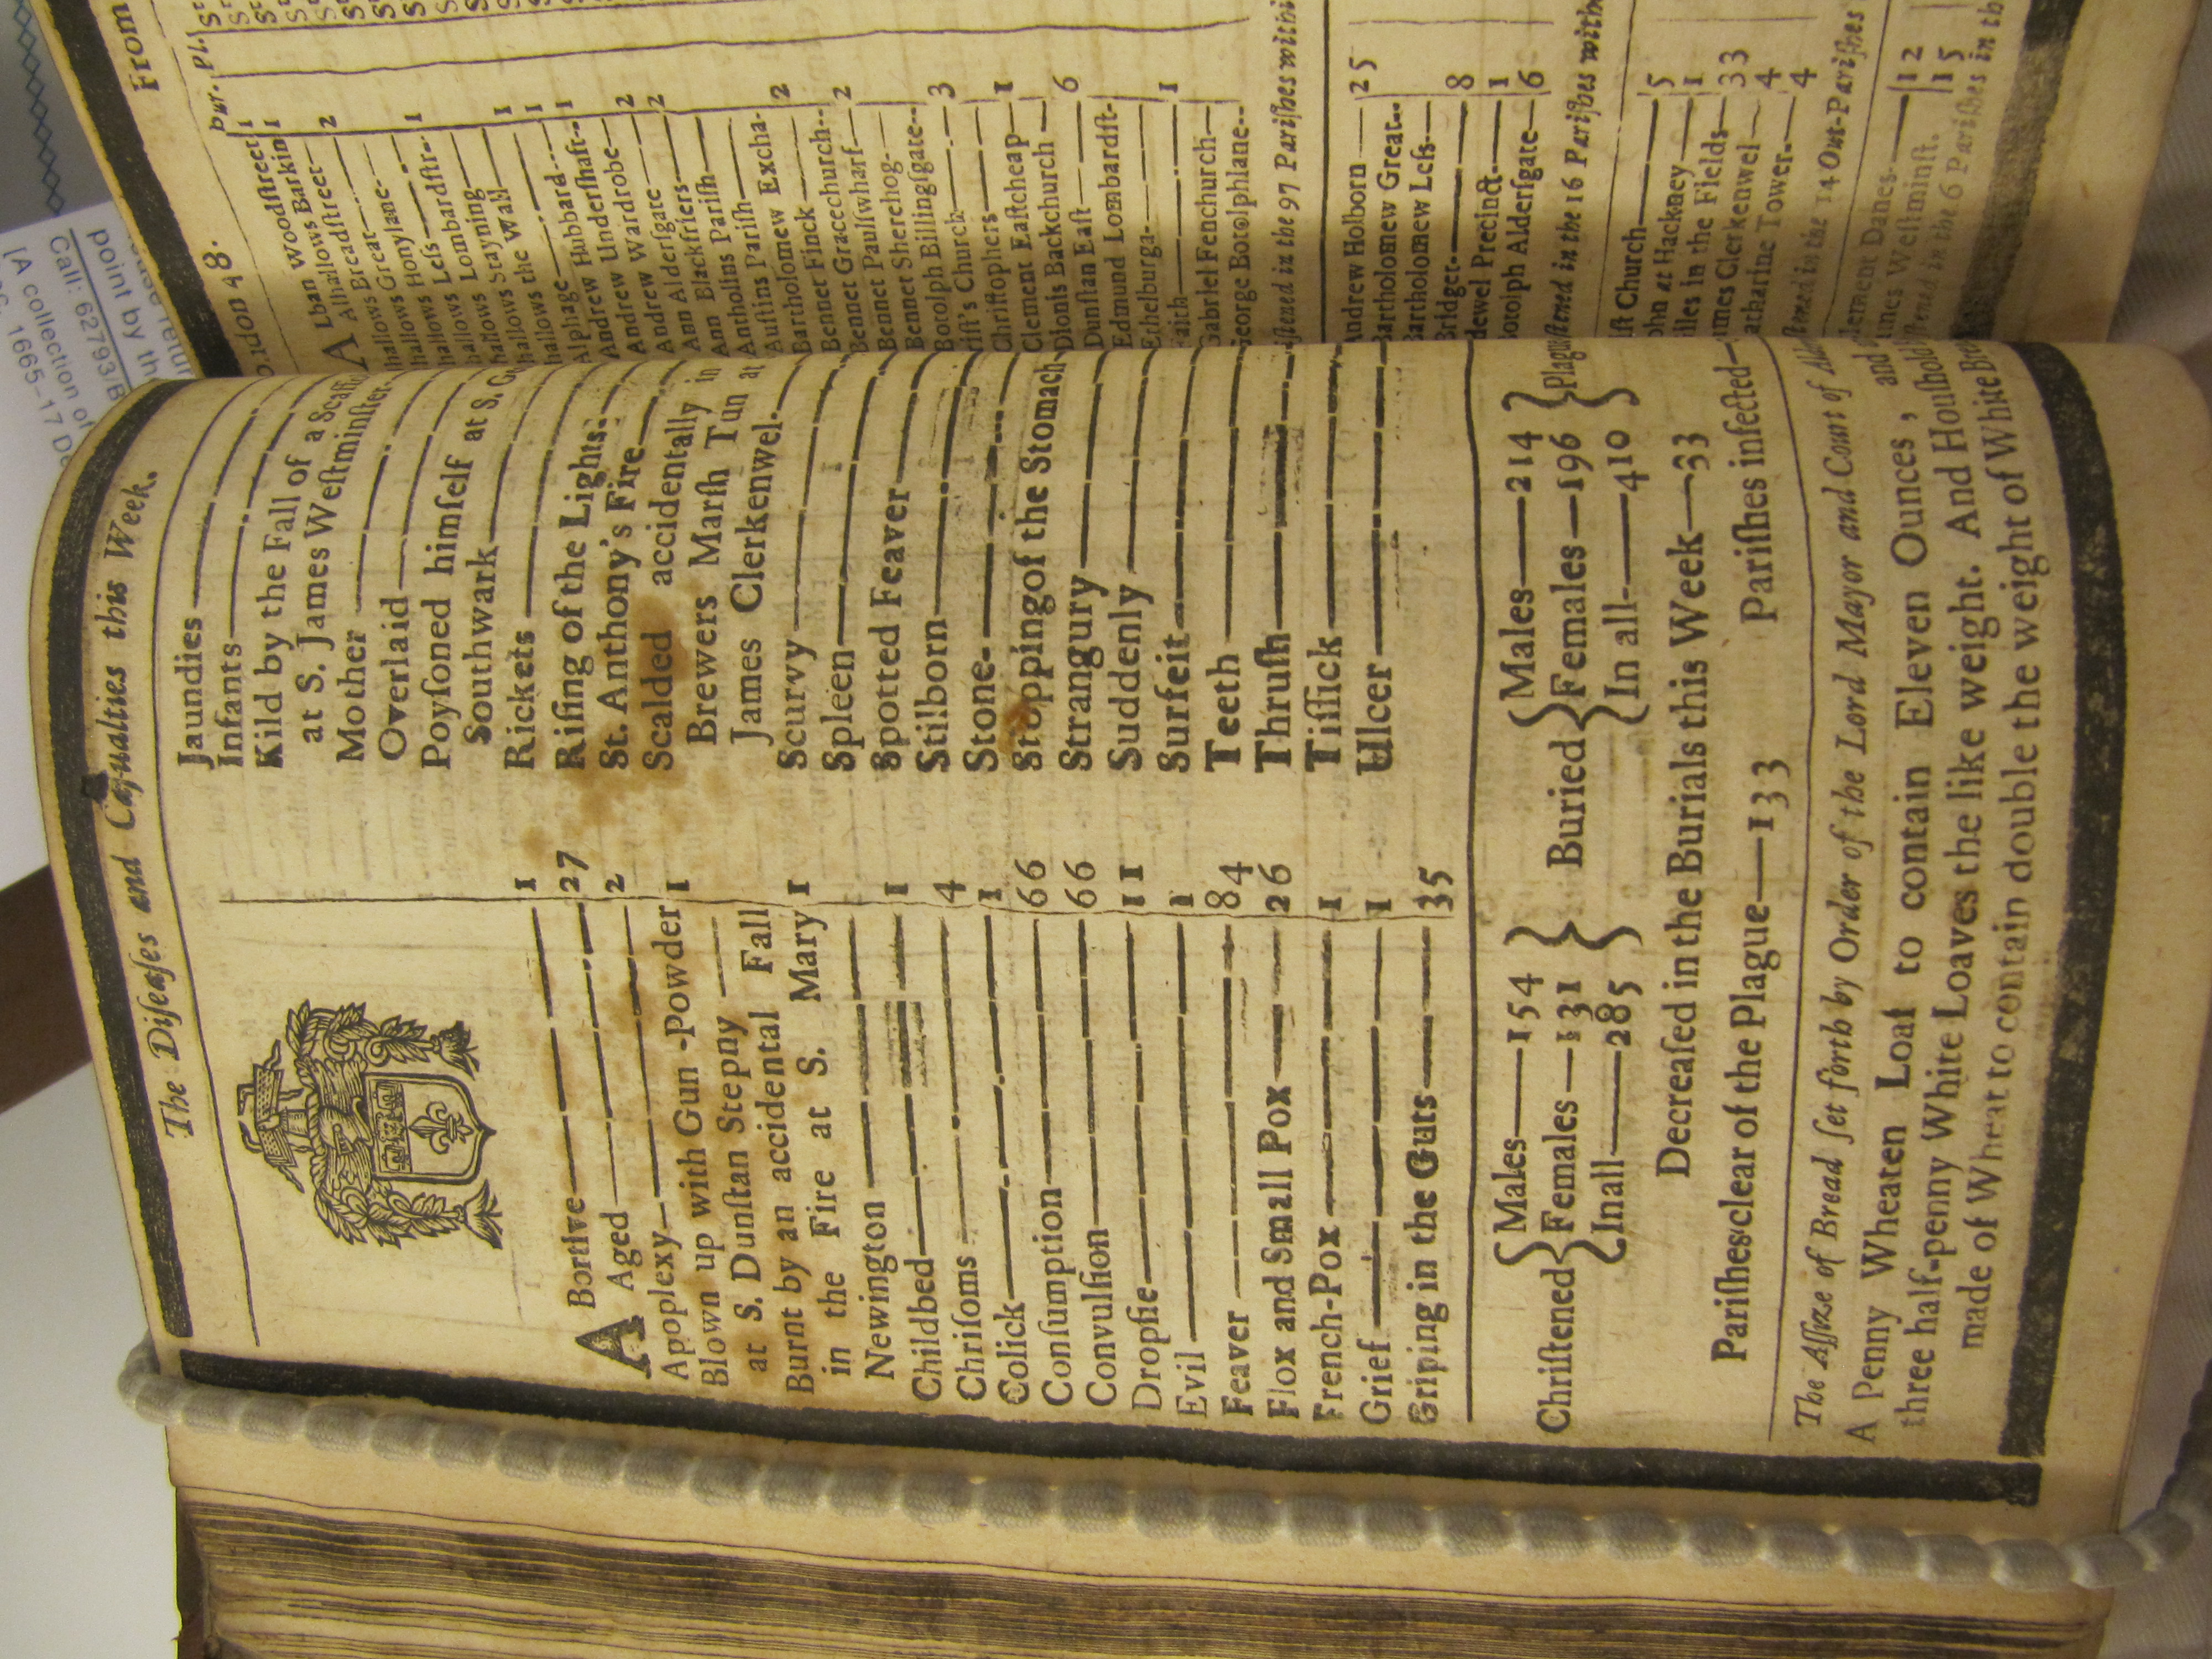 The Diſeaſes and Caſualties this Week.
A Bortive 1
Aged 27
Apoplexy 2
Blown up with Gun-Powder
at S. Dunſtan Stepny 1
Burnt by an accidental Fall
in the Fire at S. Mary
Newington 1
Childbed 1
Chriſoms 4
Colick 1
Conſumption 66
Convulſion 66
Dropſie 11
Evil 1
Feaver 84
Flox and Small Pox 26
French-Pox 1
Grief 1
Griping in the Guts 35
Jaundies
Infants
Kild by the Fall of a
at S. James Weſtminſter
Mother
Overlaid
Poyſoned himſelf at S.
Southwark
Rickets
Riſing of the Lights
St. Anthony's Fire
Scalded accidentally in
Brewers Marſh Tun at
James Clerkenwel
Scurvy
Spleen
Spotted Feaver
Stilborn
Stone
Stopping of the Stomach
Strangury
Suddenly
Surfeit
Teeth
Thruſh
Tiſſick
Ulcer
Chriſtened { Males 154 Females 131 Inall 285 }
Buried { Males 214 Females 196 In all 410 } Plagu
Decreaſed in the Burials this Week 33
Pariſhes clear of the Plague 133 Pariſhes infected
The Aſſize of Bread ſet forth by Order of the Lord Mayor and Court of
A Penny Wheaten Loaf to contain Eleven Ounces, and
three half-penny White Loaves the like weight. And Houſhold
made of Wheat to contain double the weight of White
From
London 48.
bur. Pl.
A Lban Woodſtreet 1
Alhallows Barkin 1
hallows Breadſtreet 2
hallows Great
hallows Honylane
hallows Leſs 1
hallows Lombardſtr
hallows Stayning
hallows the Wall 1
Alphage 1
Andrew Hubbard 1
Andrew Underſhaft
Andrew Wardrobe 2
Ann Alderſgate 2
Ann Blackfriers
Antholins Pariſh
Auſtins Pariſh
Bartholomew Excha- 2
Bennet Finck
Bennet Gracechurch 2
Bennet Paulſwharf
Bennet Sherehog
Botolph Billingſgate 3
Chriſt's Church
Chriſtophers 1
Clement Eaſtcheap
Dionis Backchurch 6
Dunſtan Eaſt
Edmund Lombardſt
Ethelburga 1
Faith
Gabriel Fenchurch
George Botolphlane
ſtened in the 97 Pariſhes withi
Andrew Holborn 25
Bartholomew Great
Bartholomew Leſs
Bridget 8
dewel Precinct 1
Botolph Alderſgate 6
ſtened in the 16 Pariſhes with
iſt Church 5
ohn at Hackney 1
illes in the Fields 33
mes Clerkenwel 4
atharine Tower 4
ſtened in the 14 Out-Pariſhes
lement Danes 12
mes Weſtminſt. 15
ſtened in the 6 Pariſhes in th
point by th
Call: 62793/B
[A collection of
1665-17 De